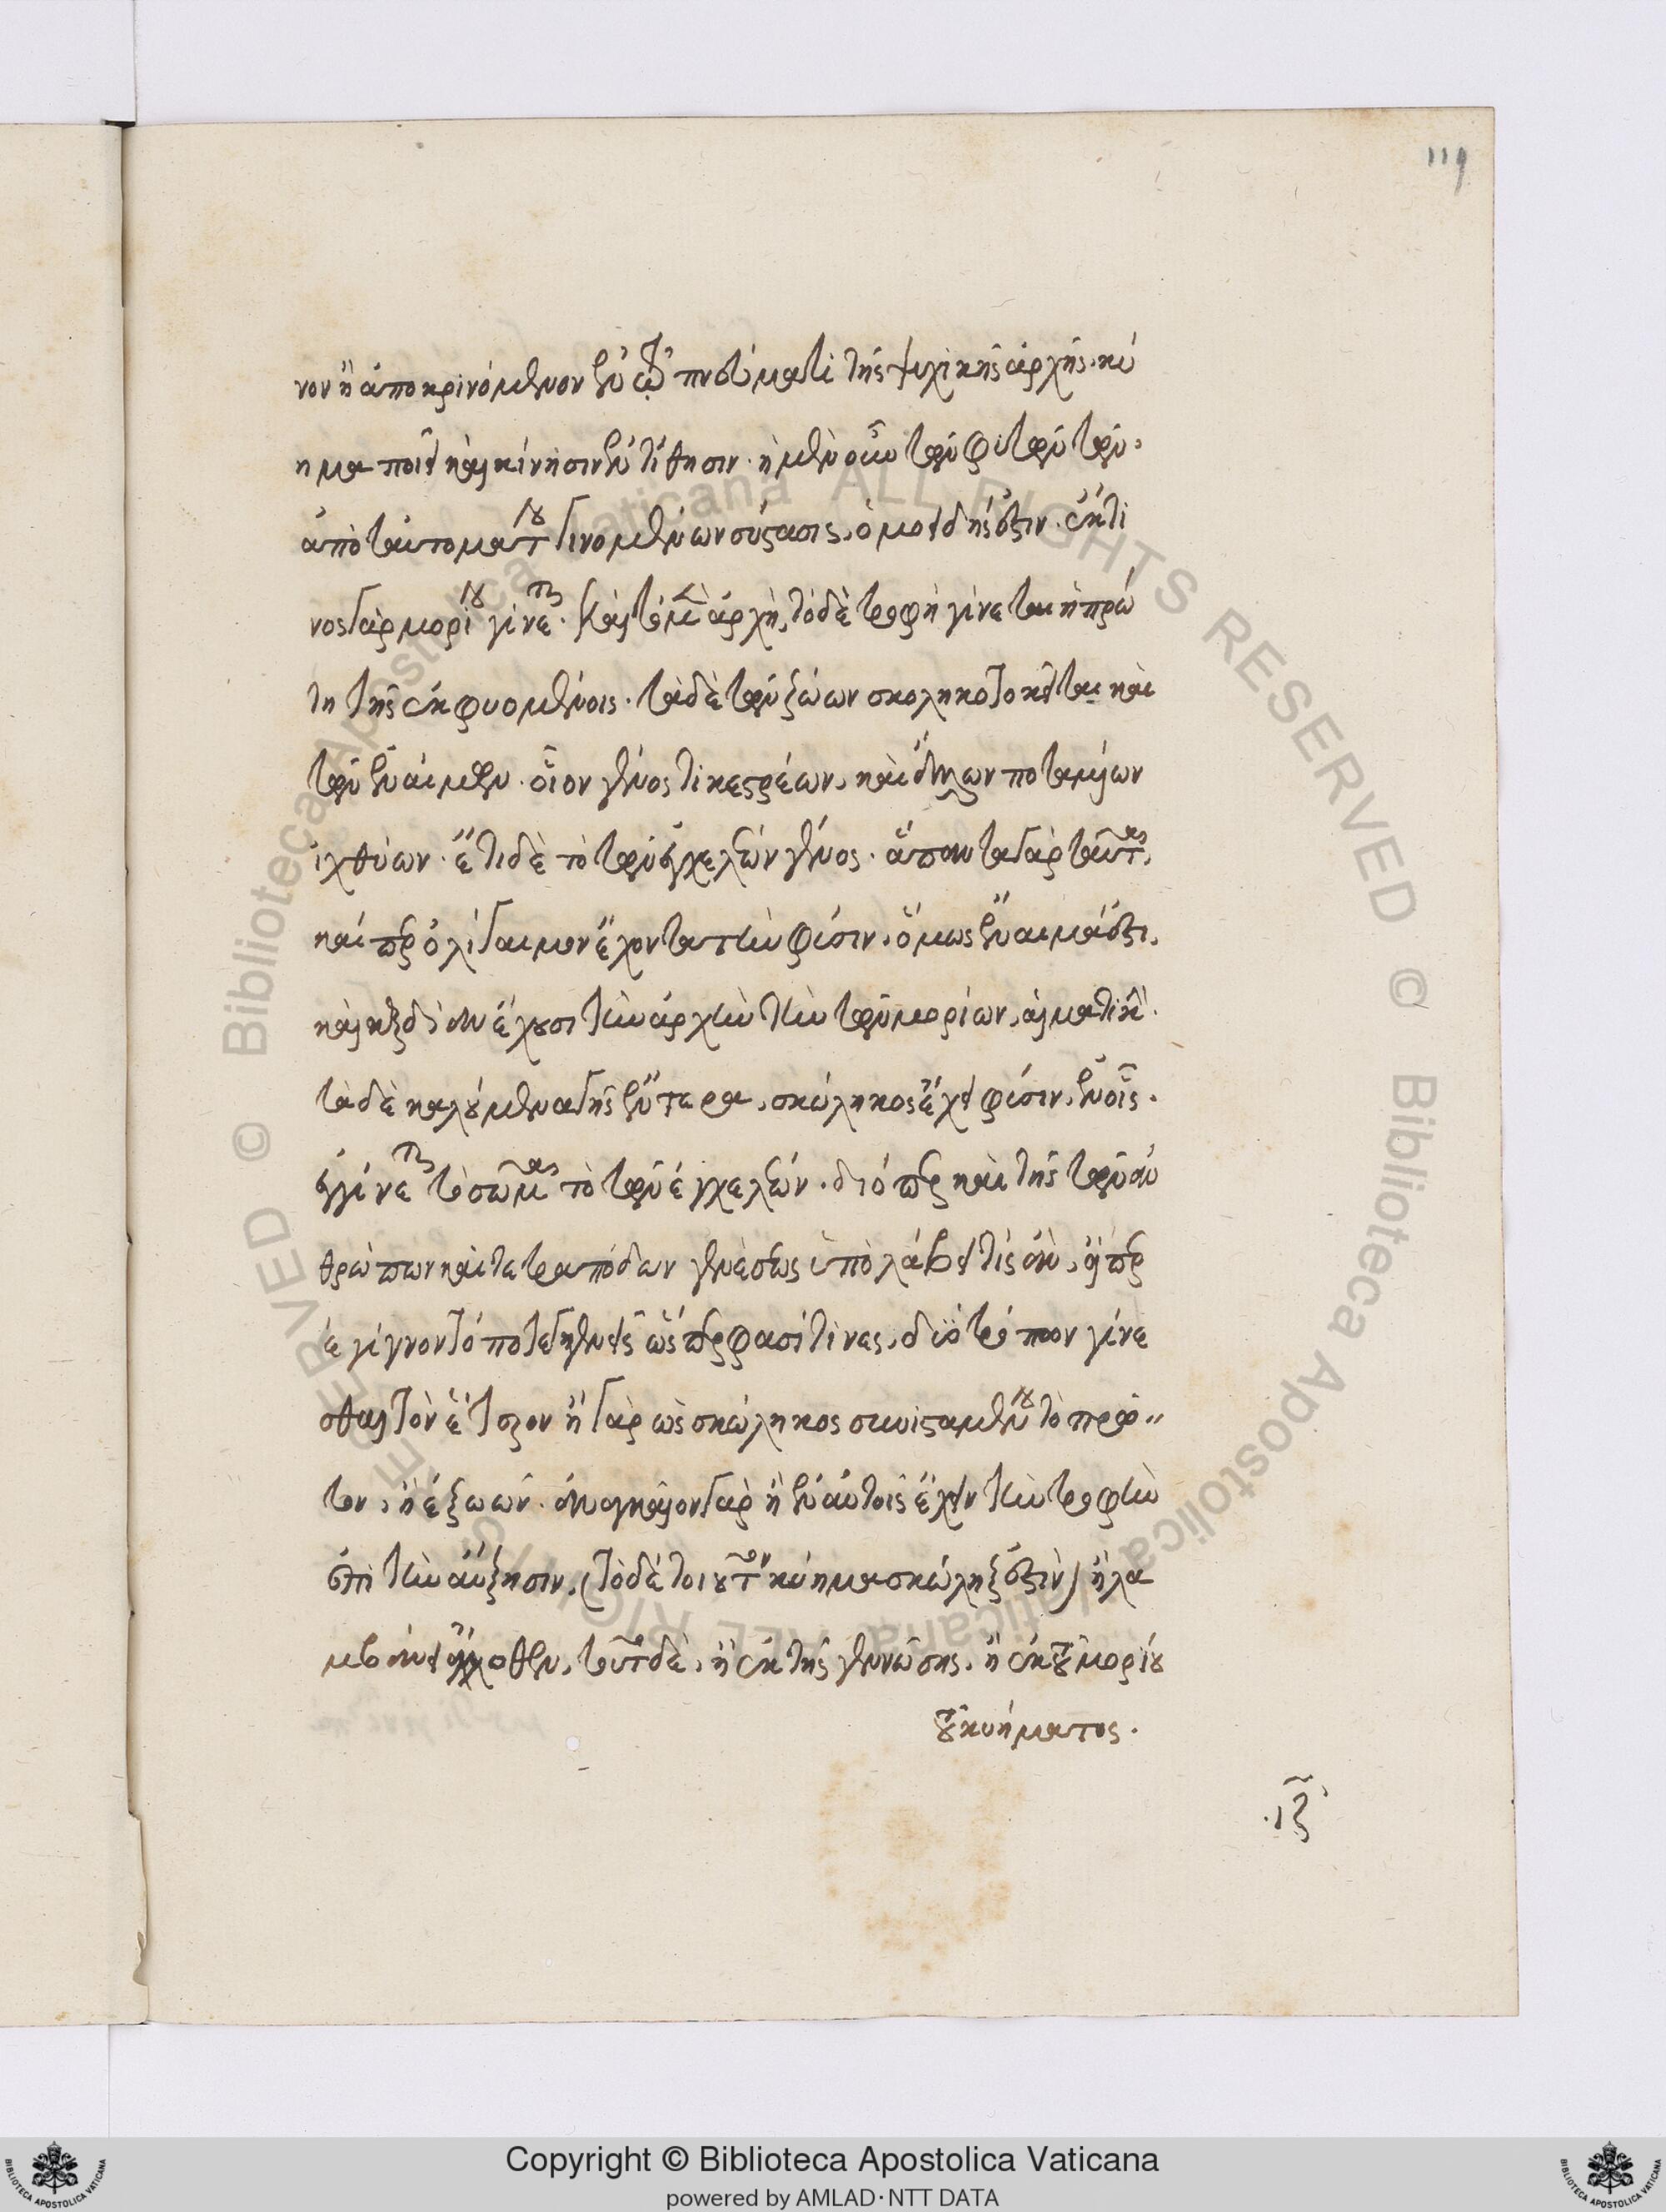 119
νον ἢ ἀποκρινόμενον ἐν τῷ πνεύματι τῆς ψυχικῆς ἀρχῆς. κύ
ημα ποιεῖ καὶ κίνησιν ἐντίθησιν. ἡ μὲν οὖν τῶν φυτῶν τῶν
ἀπὸ ταυτομάτου γινομένων σύστασις, ὁμοειδής ἐστιν. ἔκ τι
νος γὰρ μορίου γίνεται. καὶ τὸ μὲν ἀρχὴ, τὸ δὲ τροφὴ γίνεται ἡ πρώ
τη τῆς ἐκφυομένοις. τὰ δὲ τῶν ζώων σκοληκοτοκεῖται καὶ
τῶν ἐναίμων. οἷον γένος τι κεστρέων, καὶ ἄλλων ποταμίων
ἰχθύων. ἔτι δὲ τὸ τῶν ἐγχελέων γένος. ἅπαντα γὰρ ταῦτα,
καίπερ ὀλίγαιμον ἔχοντα τὴν φύσιν, ὅμως ἔναιμά ἐστι,
καὶ καρδίαν ἔχουσι τὴν ἀρχὴν τὴν τῶν μορίων, αἱματικὴ.
τὰ δὲ καλούμενα γῆς ἔντερα, σκώληκος ἔχει φύσιν, ἐν οἷς
ἐγγίνεται τὸ σῶμα τὸ τῶν ἐγχελέων. διόπερ καὶ τῆς τῶν ἀν
θρώπων καὶ τετραπόδων γενέσεως ὑπολάβοι τίς ἂν, εἴπερ
ἐγίγνοντό ποτε γηγενεῖς ὥσπερ φασί τινες, δύο τρόπον γίνε
σθαι τὸν ἕτερον ἢ γὰρ ὡς σκώληκος συνισταμένου τὸ πρῶ
τον, ἢ ἐξ ὠῶν. ἀναγκαῖον γὰρ ἢ ἐν αὐτοῖς ἔχειν τὴν τροφὴν
ἐπὶ τὴν αὔξησιν, (τὸ δὲ τοιοῦτον κύημα σκώληξ ἐστὶν) ἢ λα
μβάνειν ἄλλοθεν, τοῦτο δὲ, ἢ ἐκ τῆς γεννώσης, ἢ ἐκ τοῦ μορίου
τοῦ κυήματος.
ιζ
Copyright © Biblioteca Apostolica Vaticana
powered by AMLAD·NTT DATA